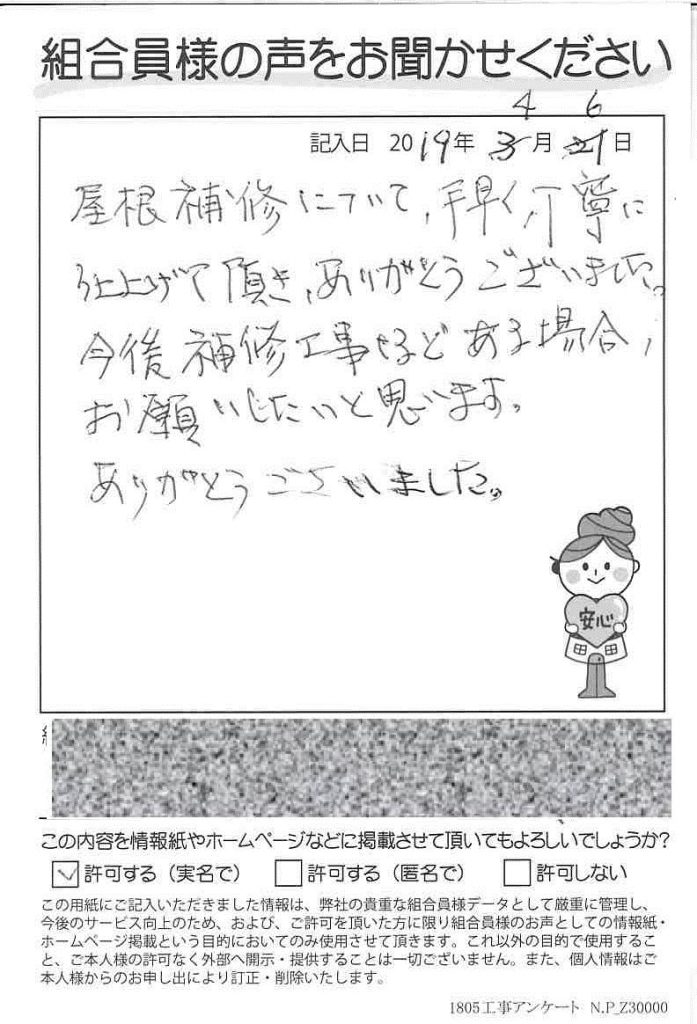 組合員様の声をお聞かせください
4 6
記入日 2019年 3月 21日
屋根補修について、手早く丁寧に
仕上げて頂き、ありがとうございました。
今後補修工事などある場合、
お願いしたいと思います。
ありがとうございました。
安心
この内容を情報紙やホームページなどに掲載させて頂いてもよろしいでしょうか?
許可する(実名で) 許可する(匿名で) 許可しない
この用紙にご記入いただきました情報は、弊社の貴重な組合員様データとして厳重に管理し、
今後のサービス向上のため、および、ご許可を頂いた方に限り組合員様のお声としての情報紙・
ホームページ掲載という目的においてのみ使用させて頂きます。これ以外の目的で使用するこ
と、ご本人様の許可なく外部へ開示・提供することは一切ございません。また、個人情報はご
本人様からのお申し出により訂正・削除いたします。
1805工事アンケート N.P_Z30000